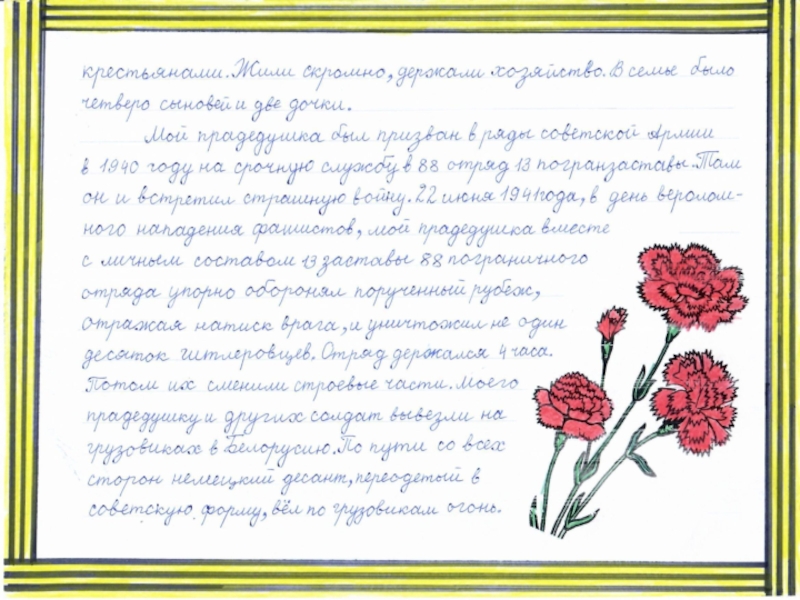 крестьянами. Жили скромно, держали хозяйство. В семье было
четверо сыновей и две дочки.
Мой прадедушка был призван в ряды советской Армии
в 1940 году на срочную службу в 88 отряд 13 погранзаставы. Там
он и встретил страшную войну. 22 июня 1941 года, в день веролом-
ного нападения фашистов, мой прадедушка вместе
с личным составом 13 заставы 88 пограничного
отряда упорно оборонял порученный рубеж,
отражая натиск врага, и уничтожил не один
десяток гитлеровцев. Отряд держался 4 часа.
Потом их сменили строевые части. Моего
прадедушку и других солдат вывезли на
грузовиках в Белорусию. По пути со всех
сторон немецкий десант, переодетый в
советскую форму, вёл по грузовикам огонь.